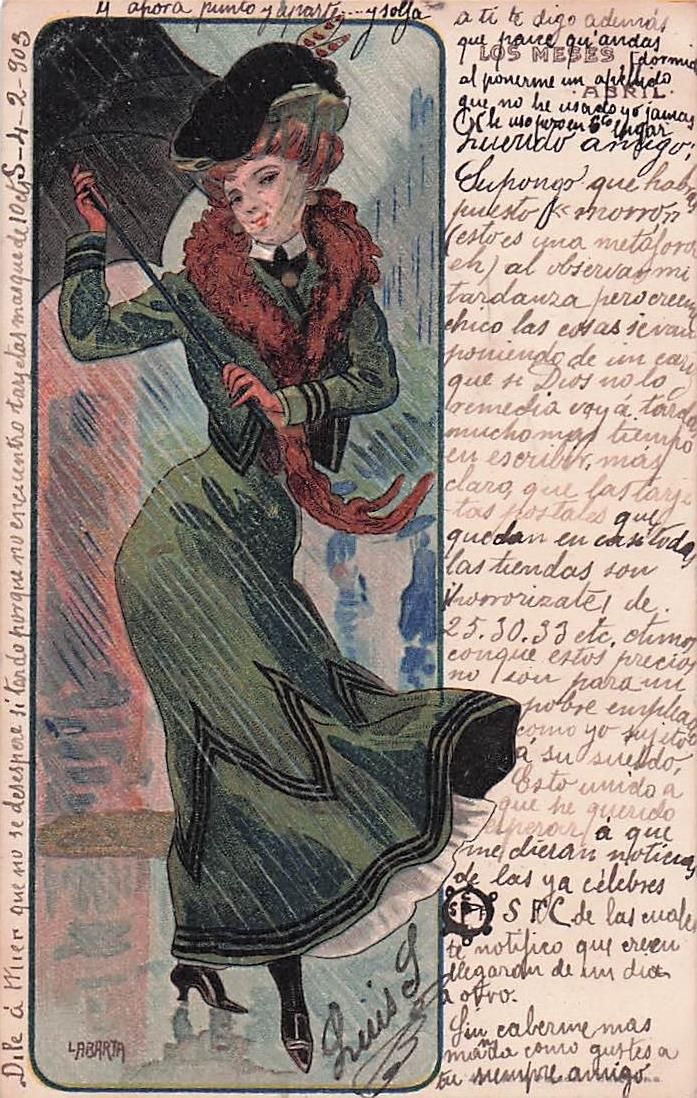 y ahora punto y aparte.... y solfa
a ti te digo además
que parece qu'andas
dormid
al ponerme un apellido
que no he usado yo jamas
LOS MESES
ABRIL.
Querido amigo:
Supongo que hab
puesto "morron"
(esto es una metáfora
eh) al observar mi
tardanza pero creeme
chico las cosas se van
poniendo de un cari
que si Dios no lo
remedia voy á tardar
mucho mas tiempo
en escribir, más
claro, que las tarje
tas postales que
quedan en casi todas
las tiendas son
¡horrorizate! de
25.30.33 etc. ctmos
conque estos precios
no son para un
pobre emplea
como yo sujeto
á su sueldo
Esto unido á
que he querido
esperar á que
me dieran noticias
de las ya célebres
de las cuales
te notifico que creen
llegaran de un dia
a otro.
Sin caberme mas
nada como gustes a
tu siempre amigo
Luis S
LABARTA
Dile á Mier que no se desespere si tardo porque no encuentro tarjetas mas que de 10 cts 4-2-903